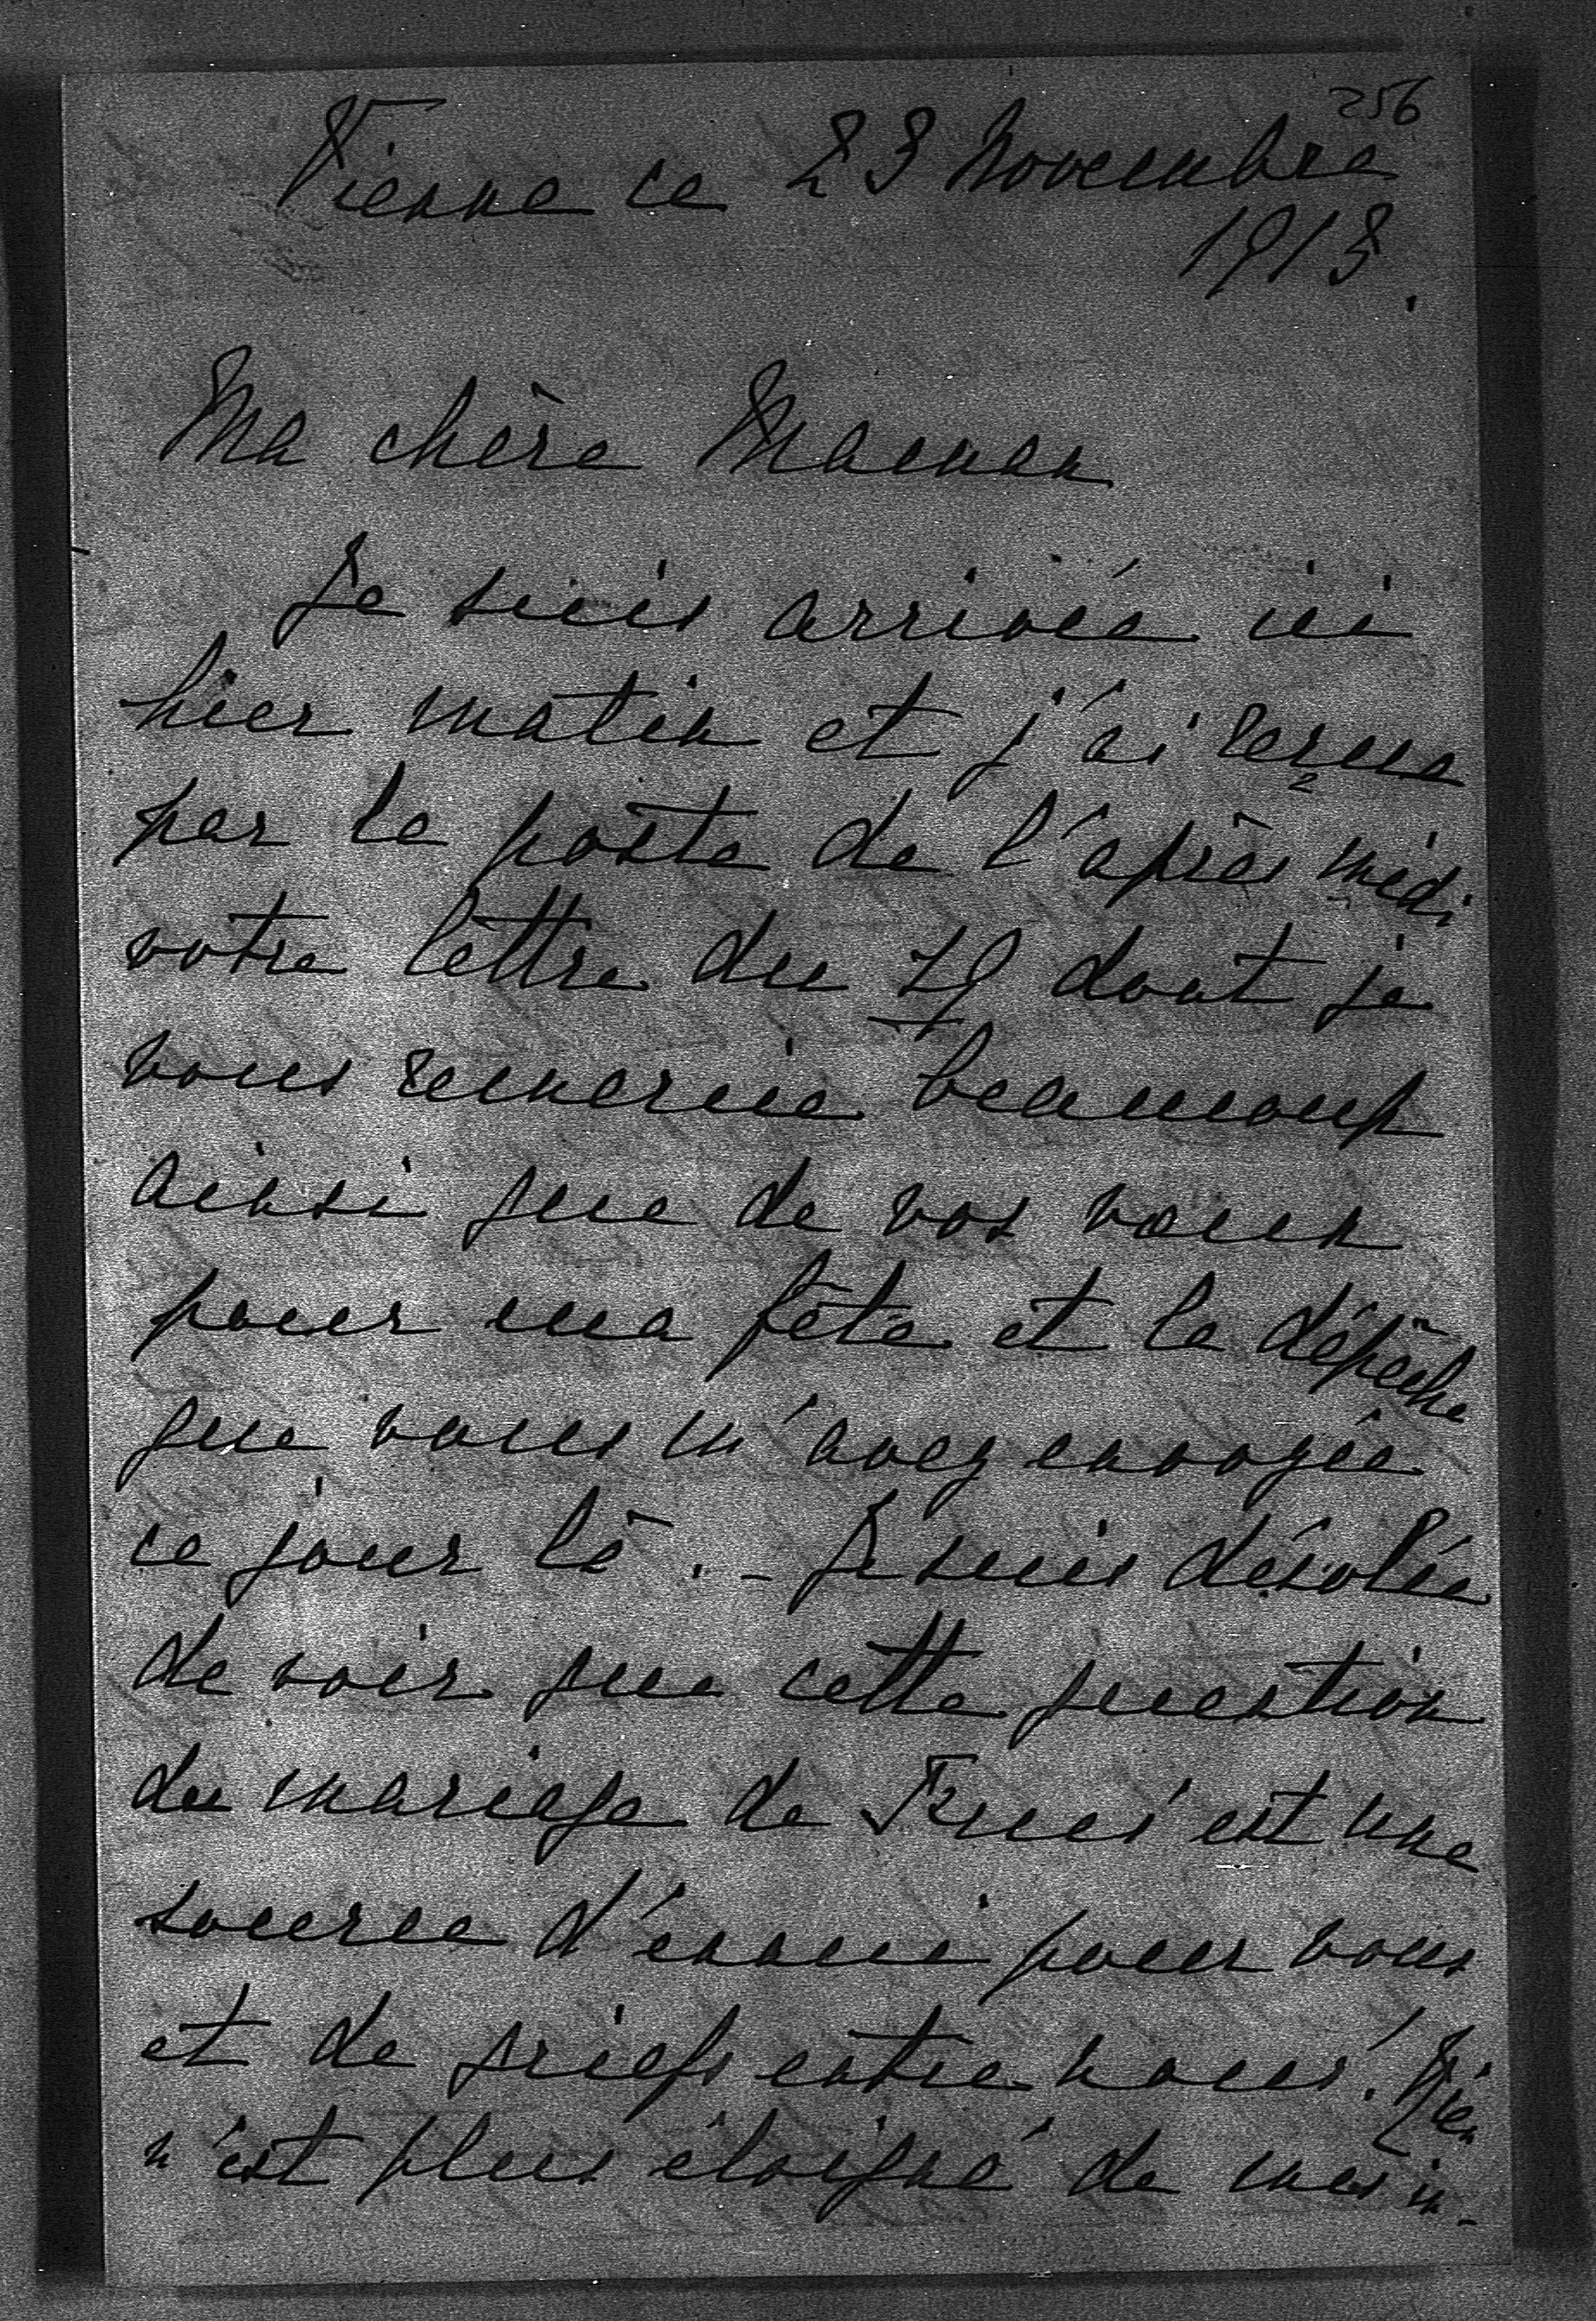 256
Vienne ce 23 Novembre
1913.
Ma chère Maman
Je suis arrivée ici
hier matin et j'ai reçue
par la poste de l'après midi
votre lettre du 19 dont je
vous remercie beaucoup
ainsi que de vos vœux
pour ma fête et la dépêche
que vous m'avez envoyée
ce jour là. - Je suis désolée
de voir que cette question
du mariage de est une
source d'ennui pour vous
et de griefs entre nous! Rien
n'est plus éloigné de mes in-